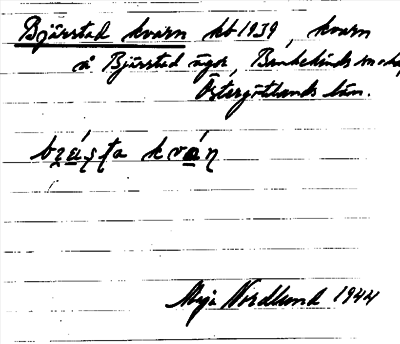 Bjärstad kvarn kb 1939, kvarn
å Bjärstad ägor, Bankekinds
Östergötlands län.
kván
Maja Nordlund 1944